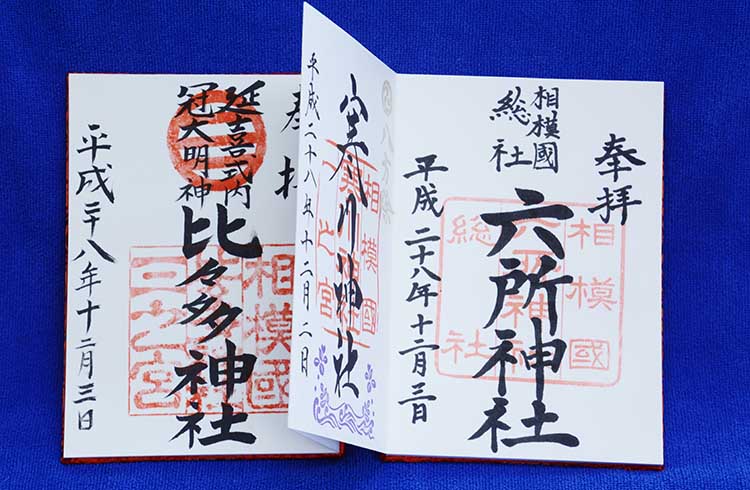 奉拝
相模國
総社
六所神社
平成二十八年十二月三日
相模國
六所神社
総社
八方除
寒川神社
平成二十八年十二月二日
相模國
一之宮
奉拝
延喜式内
冠大明神
比々多神社
平成二十八年十二月三日
相模國
三之宮